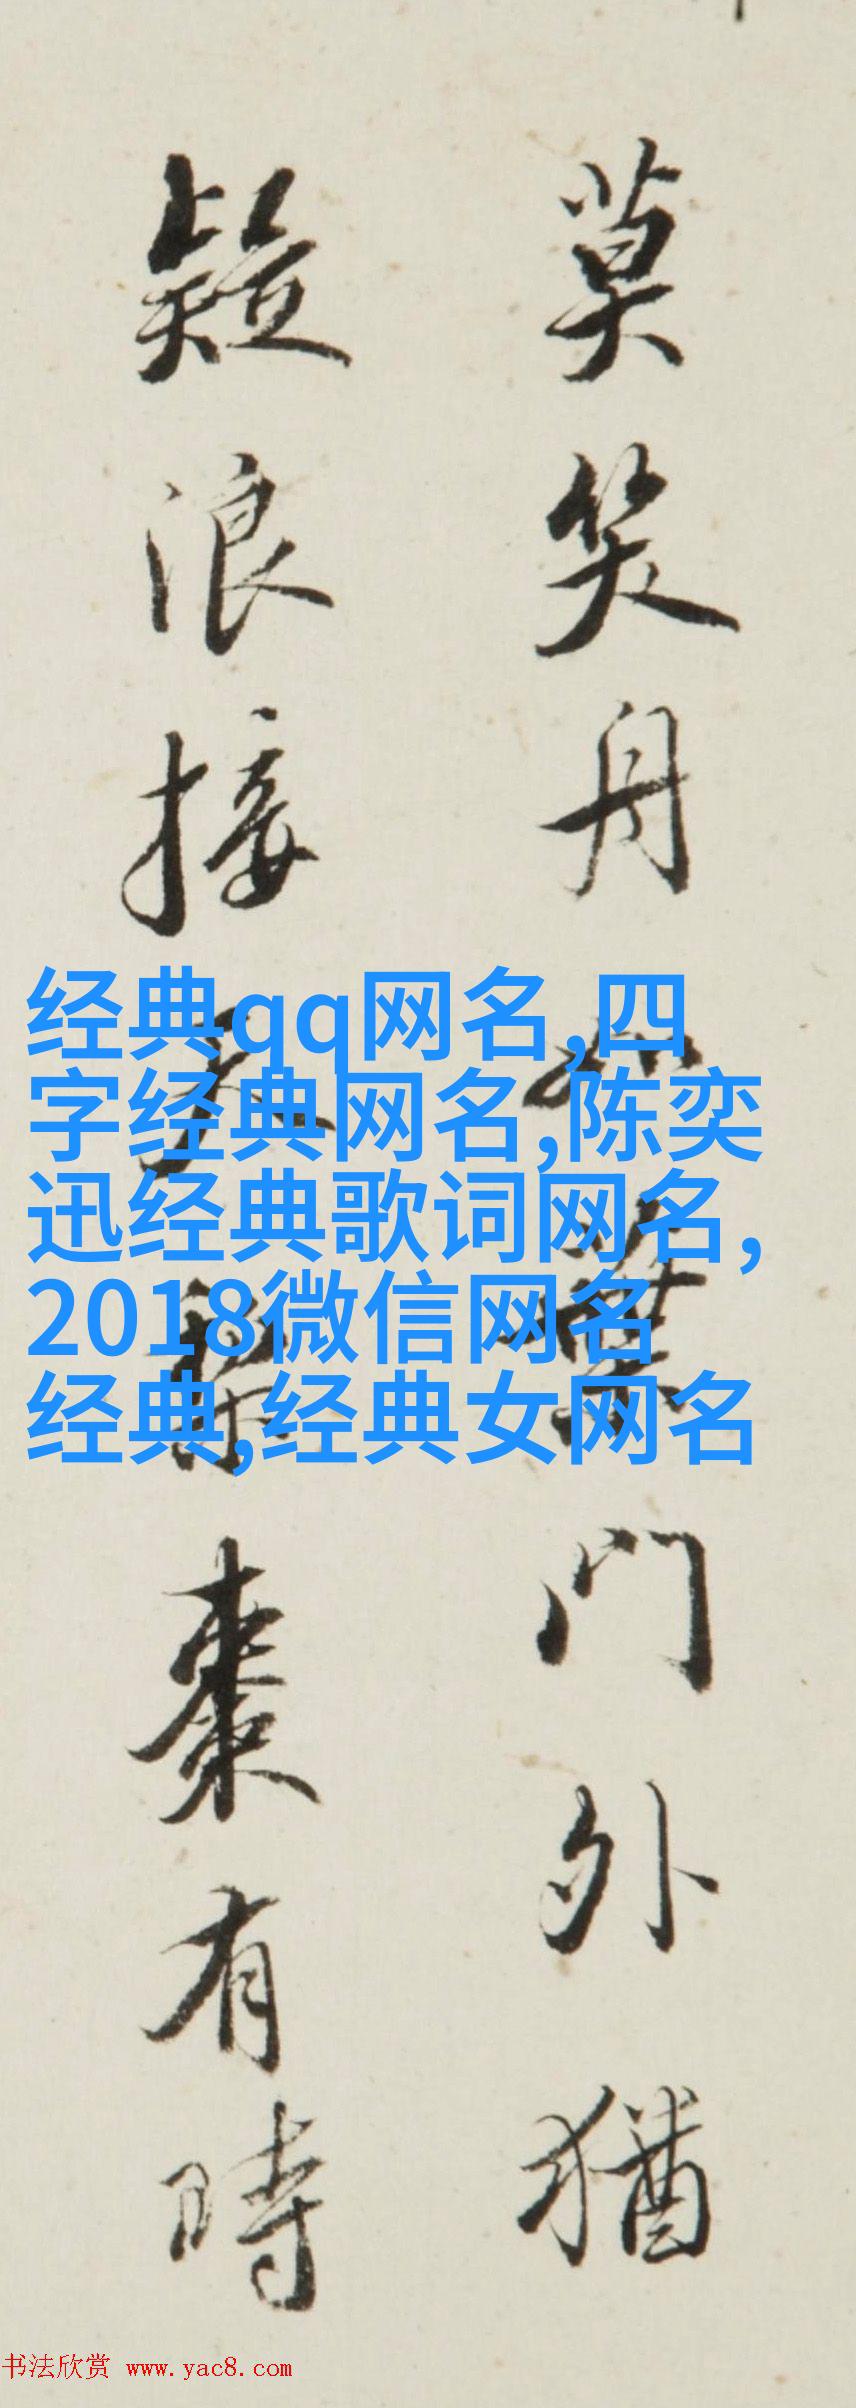 莫笑舟如葉門外猶
疑浪接天栗棗有時
经典qq网名,四
字经典网名,陈奕
迅经典歌词网名,
2018微信网名
经典,经典女网名
书法欣赏 www.yac8.com